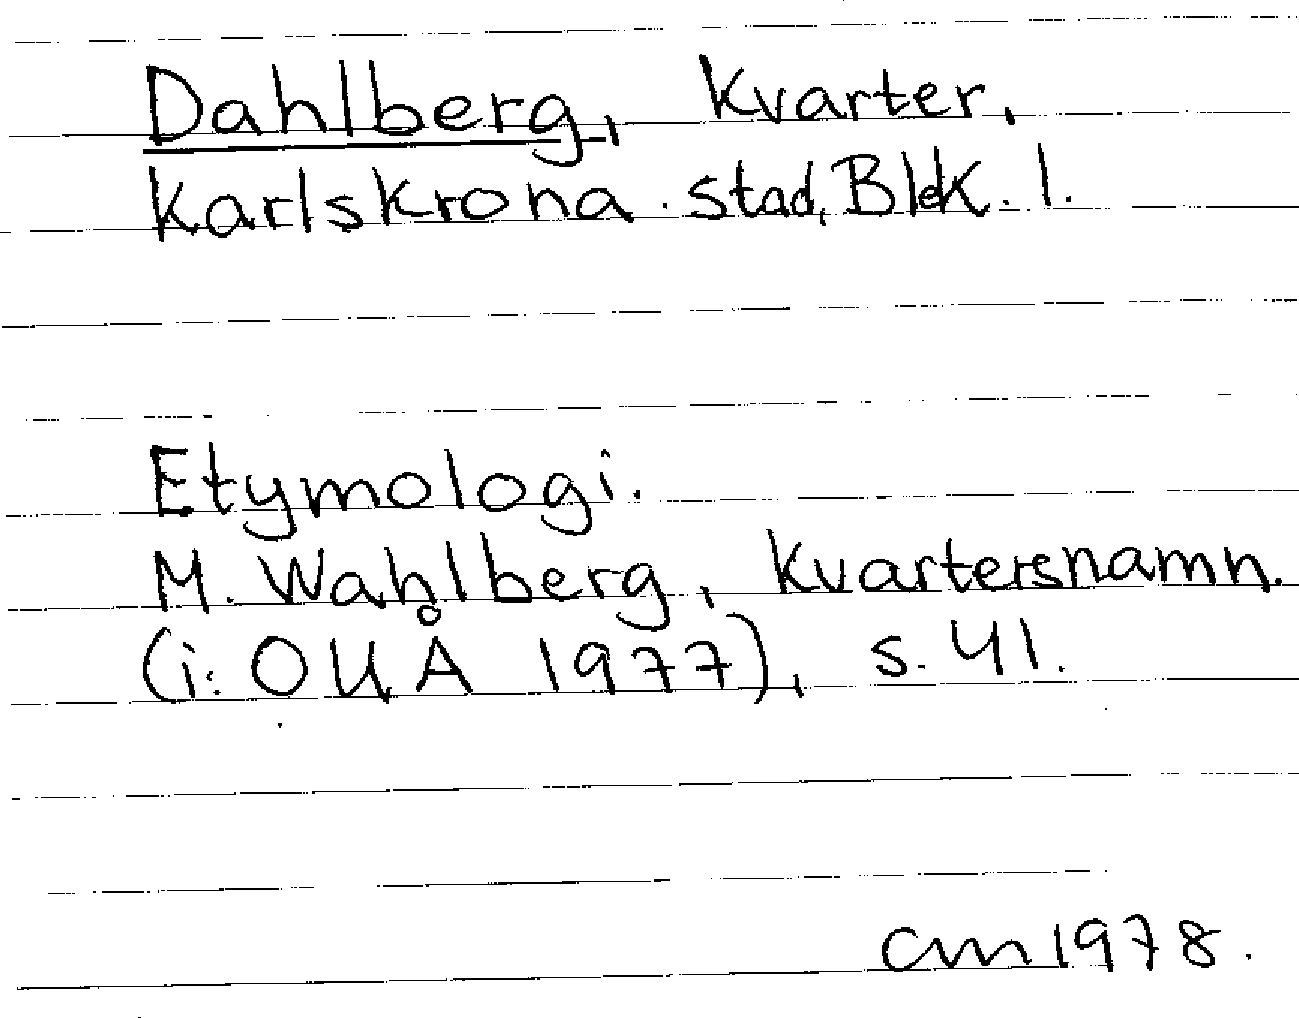 Dahlberg, kvarter,
Karlskrona stad, Blek. l.
Etymologi.
M. Wahlberg, Kvartersnamn.
(i: OUÅ 1977), s. 41.
cm 1978.